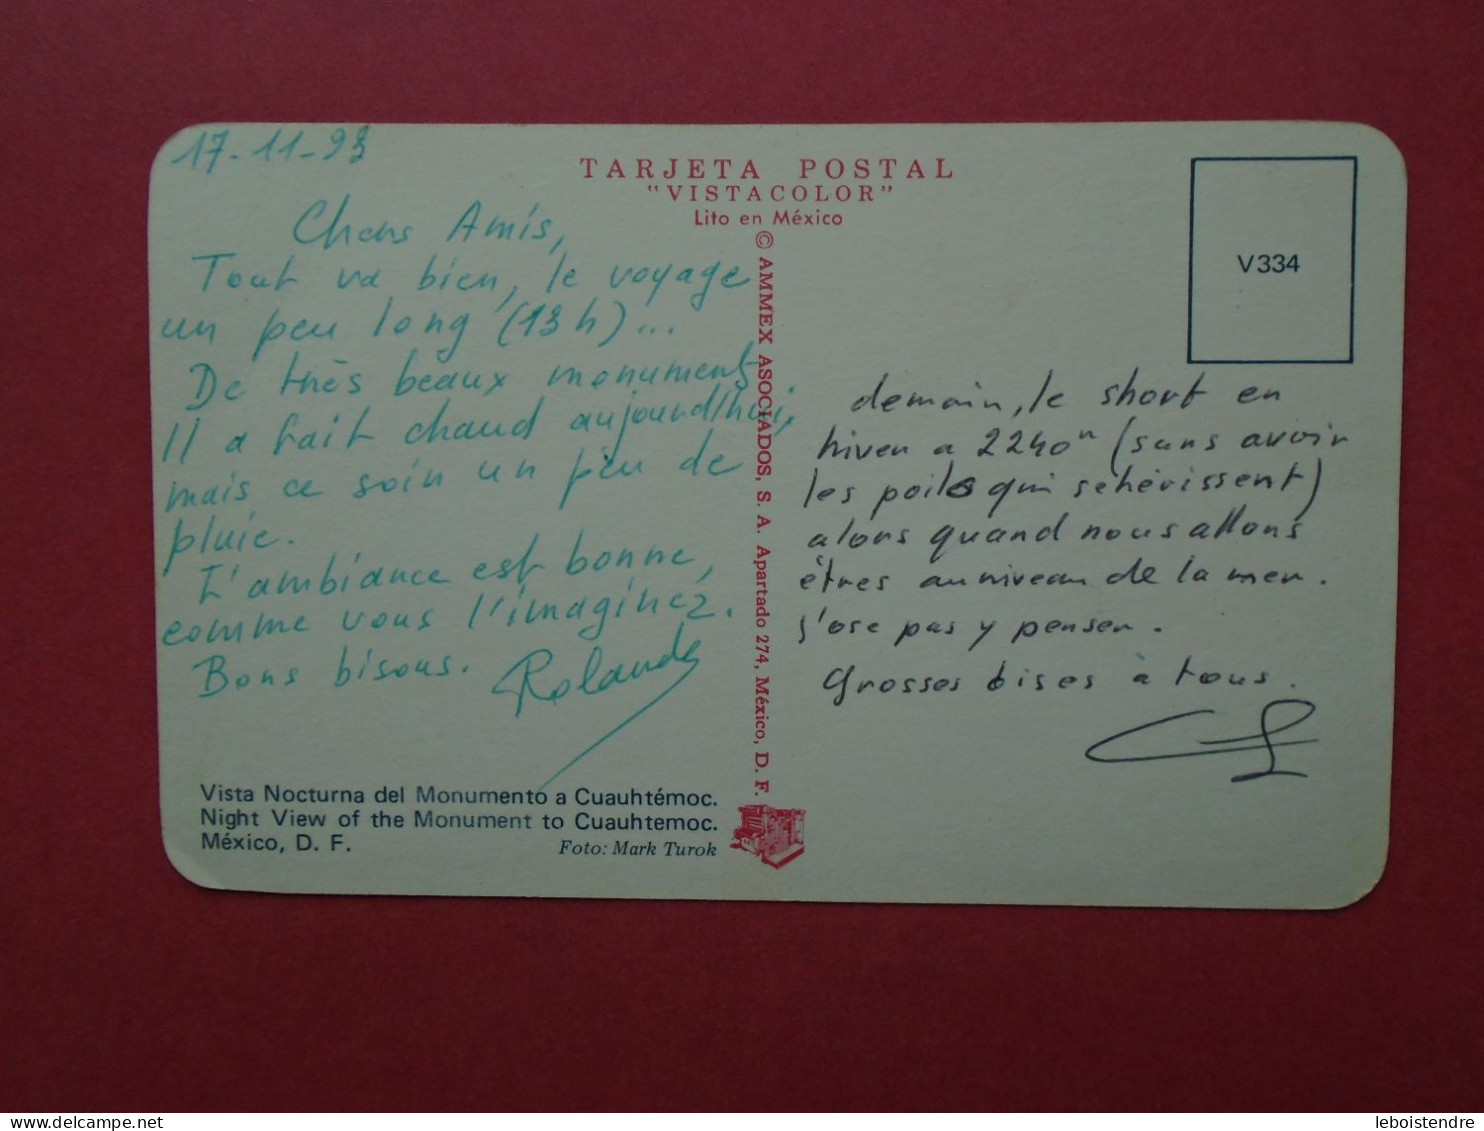 17-11-93
TARJETA POSTAL
"VISTACOLOR"
Lito en México
Chers Amis,
Tout va bien, le voyage
un peu long (13h)...
De très beaux monuments
Il a fait chaud aujourd'hui,
mais ce soir un peu de
pluie.
L'ambiance est bonne,
comme vous l'imaginez.
Bons bisous. Rolande
Vista Nocturna del Monumento a Cuauhtémoc.
Night View of the Monument to Cuauhtemoc.
México, D. F.
Foto: Mark Turok
© AMMEX ASOCIADOS, S. A. Apartado 274, México, D. F.
V334
demain, le short en
hiver a 2240m (sans avoir
les poils qui se hérissent)
alors quand nous allons
êtres au niveau de la mer.
j'ose pas y penser.
Grosses bises à tous.
leboistendre